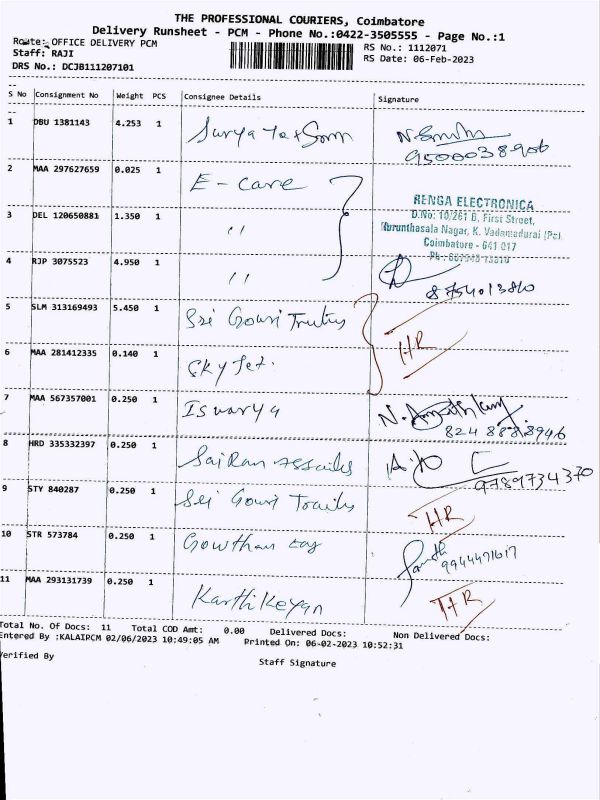 THE PROFESSIONAL COURIERS, Coimbatore
Delivery Runsheet - PCM - Phone No.:0422-3505555 - Page No.:1
Route: OFFICE DELIVERY PCM
RS No.: 1112071
Staff: RAJI
RS Date: 06-Feb-2023
DRS No.: DCJB111207101
S No Consignment No Weight PCS Consignee Details Signature
1 DBU 1381143 4.253 1 Surya Tex N.
9500038906
2 MAA 297627659 0.025 1 E-care
RENGA ELECTRONICA
D.No: 10/261 B, First Street,
3 DEL 120650881 1.350 1 "
Kurunthasala Nagar, K. Vadamadurai (Po).
Coimbatore - 641 017
4 RJP 3075523 4.950 1 "
5 SLM 313169493 5.450 1 Sri Gowri
HR
6 MAA 281412335 0.140 1 Sky Jet.
7 MAA 567357001 0.250 1 Iswarya N.
8 HRD 335332397 0.250 1 SaiRam
9789734370
9 STY 840287 0.250 1 Sri Gowri
HR
10 STR 573784 0.250 1 Gowtham
11 MAA 293131739 0.250 1 Karthikeyan HR
Total No. Of Docs: 11 Total COD Amt: 0.00 Delivered Docs: Non Delivered Docs:
Entered By :KALAIPCM 02/06/2023 10:49:05 AM Printed On: 06-02-2023 10:52:31
Verified By
Staff Signature